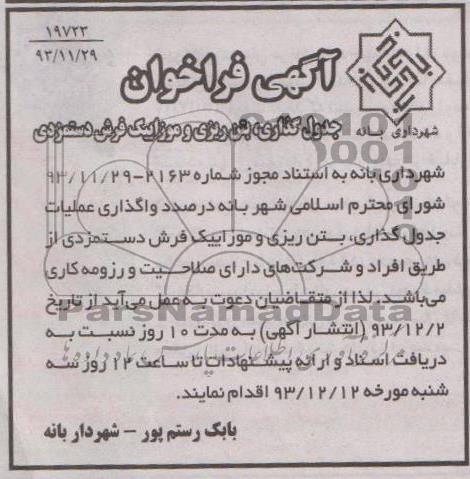 ۱۹۷۲۳
۹۳/۱۱/۲۹
شهرداری بانه
آگهی فراخوان
جدول گذاری، بتن ریزی و موزاییک فرش دستمزدی
شهرداری بانه به استناد مجوز شماره ۲۱۶۳-۹۳/۱۱/۲۹
شورای محترم اسلامی شهر بانه درصدد واگذاری عملیات
جدول گذاری، بتن ریزی و موزاییک فرش دستمزدی از
طریق افراد و شرکت‌های دارای صلاحیت و رزومه کاری
می‌باشد. لذا از متقاضیان دعوت به عمل می‌آید از تاریخ
۹۳/۱۲/۲ (انتشار آگهی) به مدت ۱۰ روز نسبت به
دریافت اسناد و ارائه پیشنهادات تا ساعت ۱۲ روز سه
شنبه مورخه ۹۳/۱۲/۱۲ اقدام نمایند.
بابک رستم پور – شهردار بانه
ParsNamadData